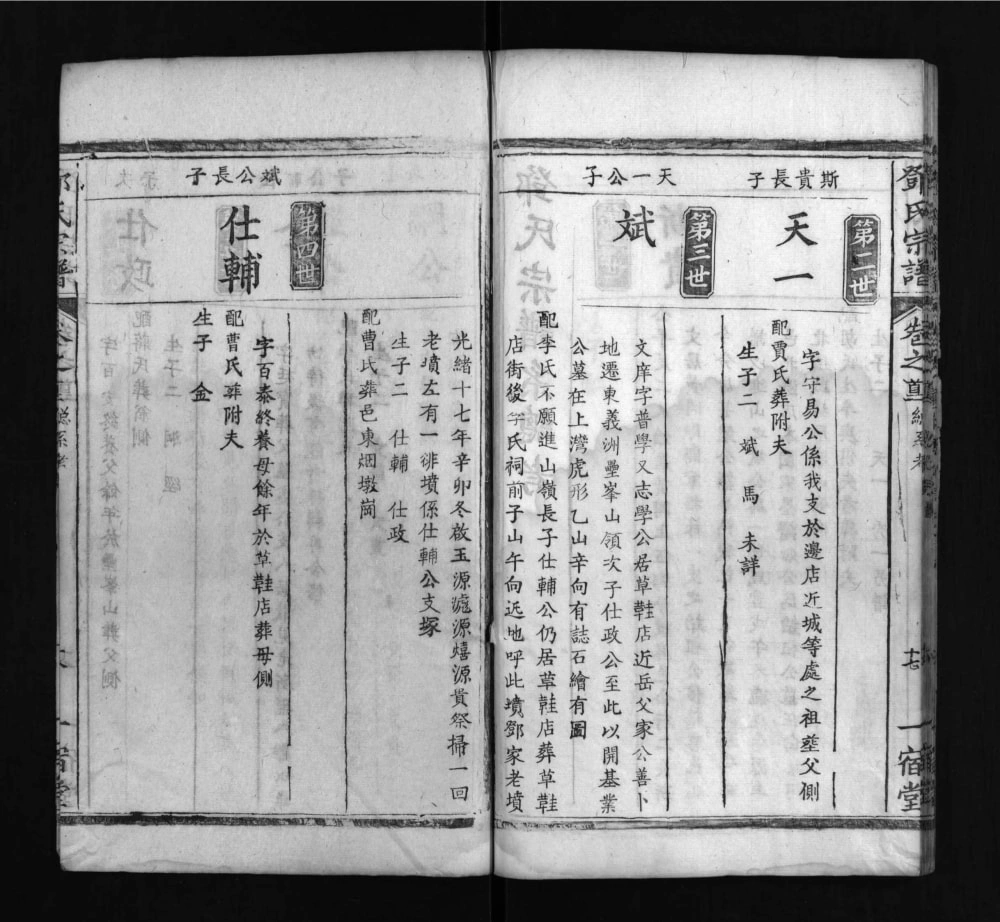 鄧氏宗譜
卷之首
七
一宿堂
第二世
斯貴長子
天一
字守易公係我支於邊店近城等處之祖塟父側
配賈氏葬附夫
生子二 斌 馬 未詳
第三世
天一公子
斌
文庠字普學又志學公居草鞋店近岳父家公善卜
地遷東義洲壘峯山領次子仕政公至此以開基業
公墓在上灣虎形乙山辛向有誌石繪有圖
配李氏不願進山嶺長子仕輔公仍居草鞋店葬草鞋
店街後李氏祠前子山午向迯地呼此墳鄧家老墳
光緒十七年辛卯冬啟玉源滮源熺源貴祭掃一回
老墳左有一徘墳係仕輔公支塚
生子二 仕輔 仕政
配曹氏葬邑東烟墩崗
第四世
斌公長子
仕輔
字百泰終養母餘年於草鞋店葬母側
配曹氏葬附夫
生子 金